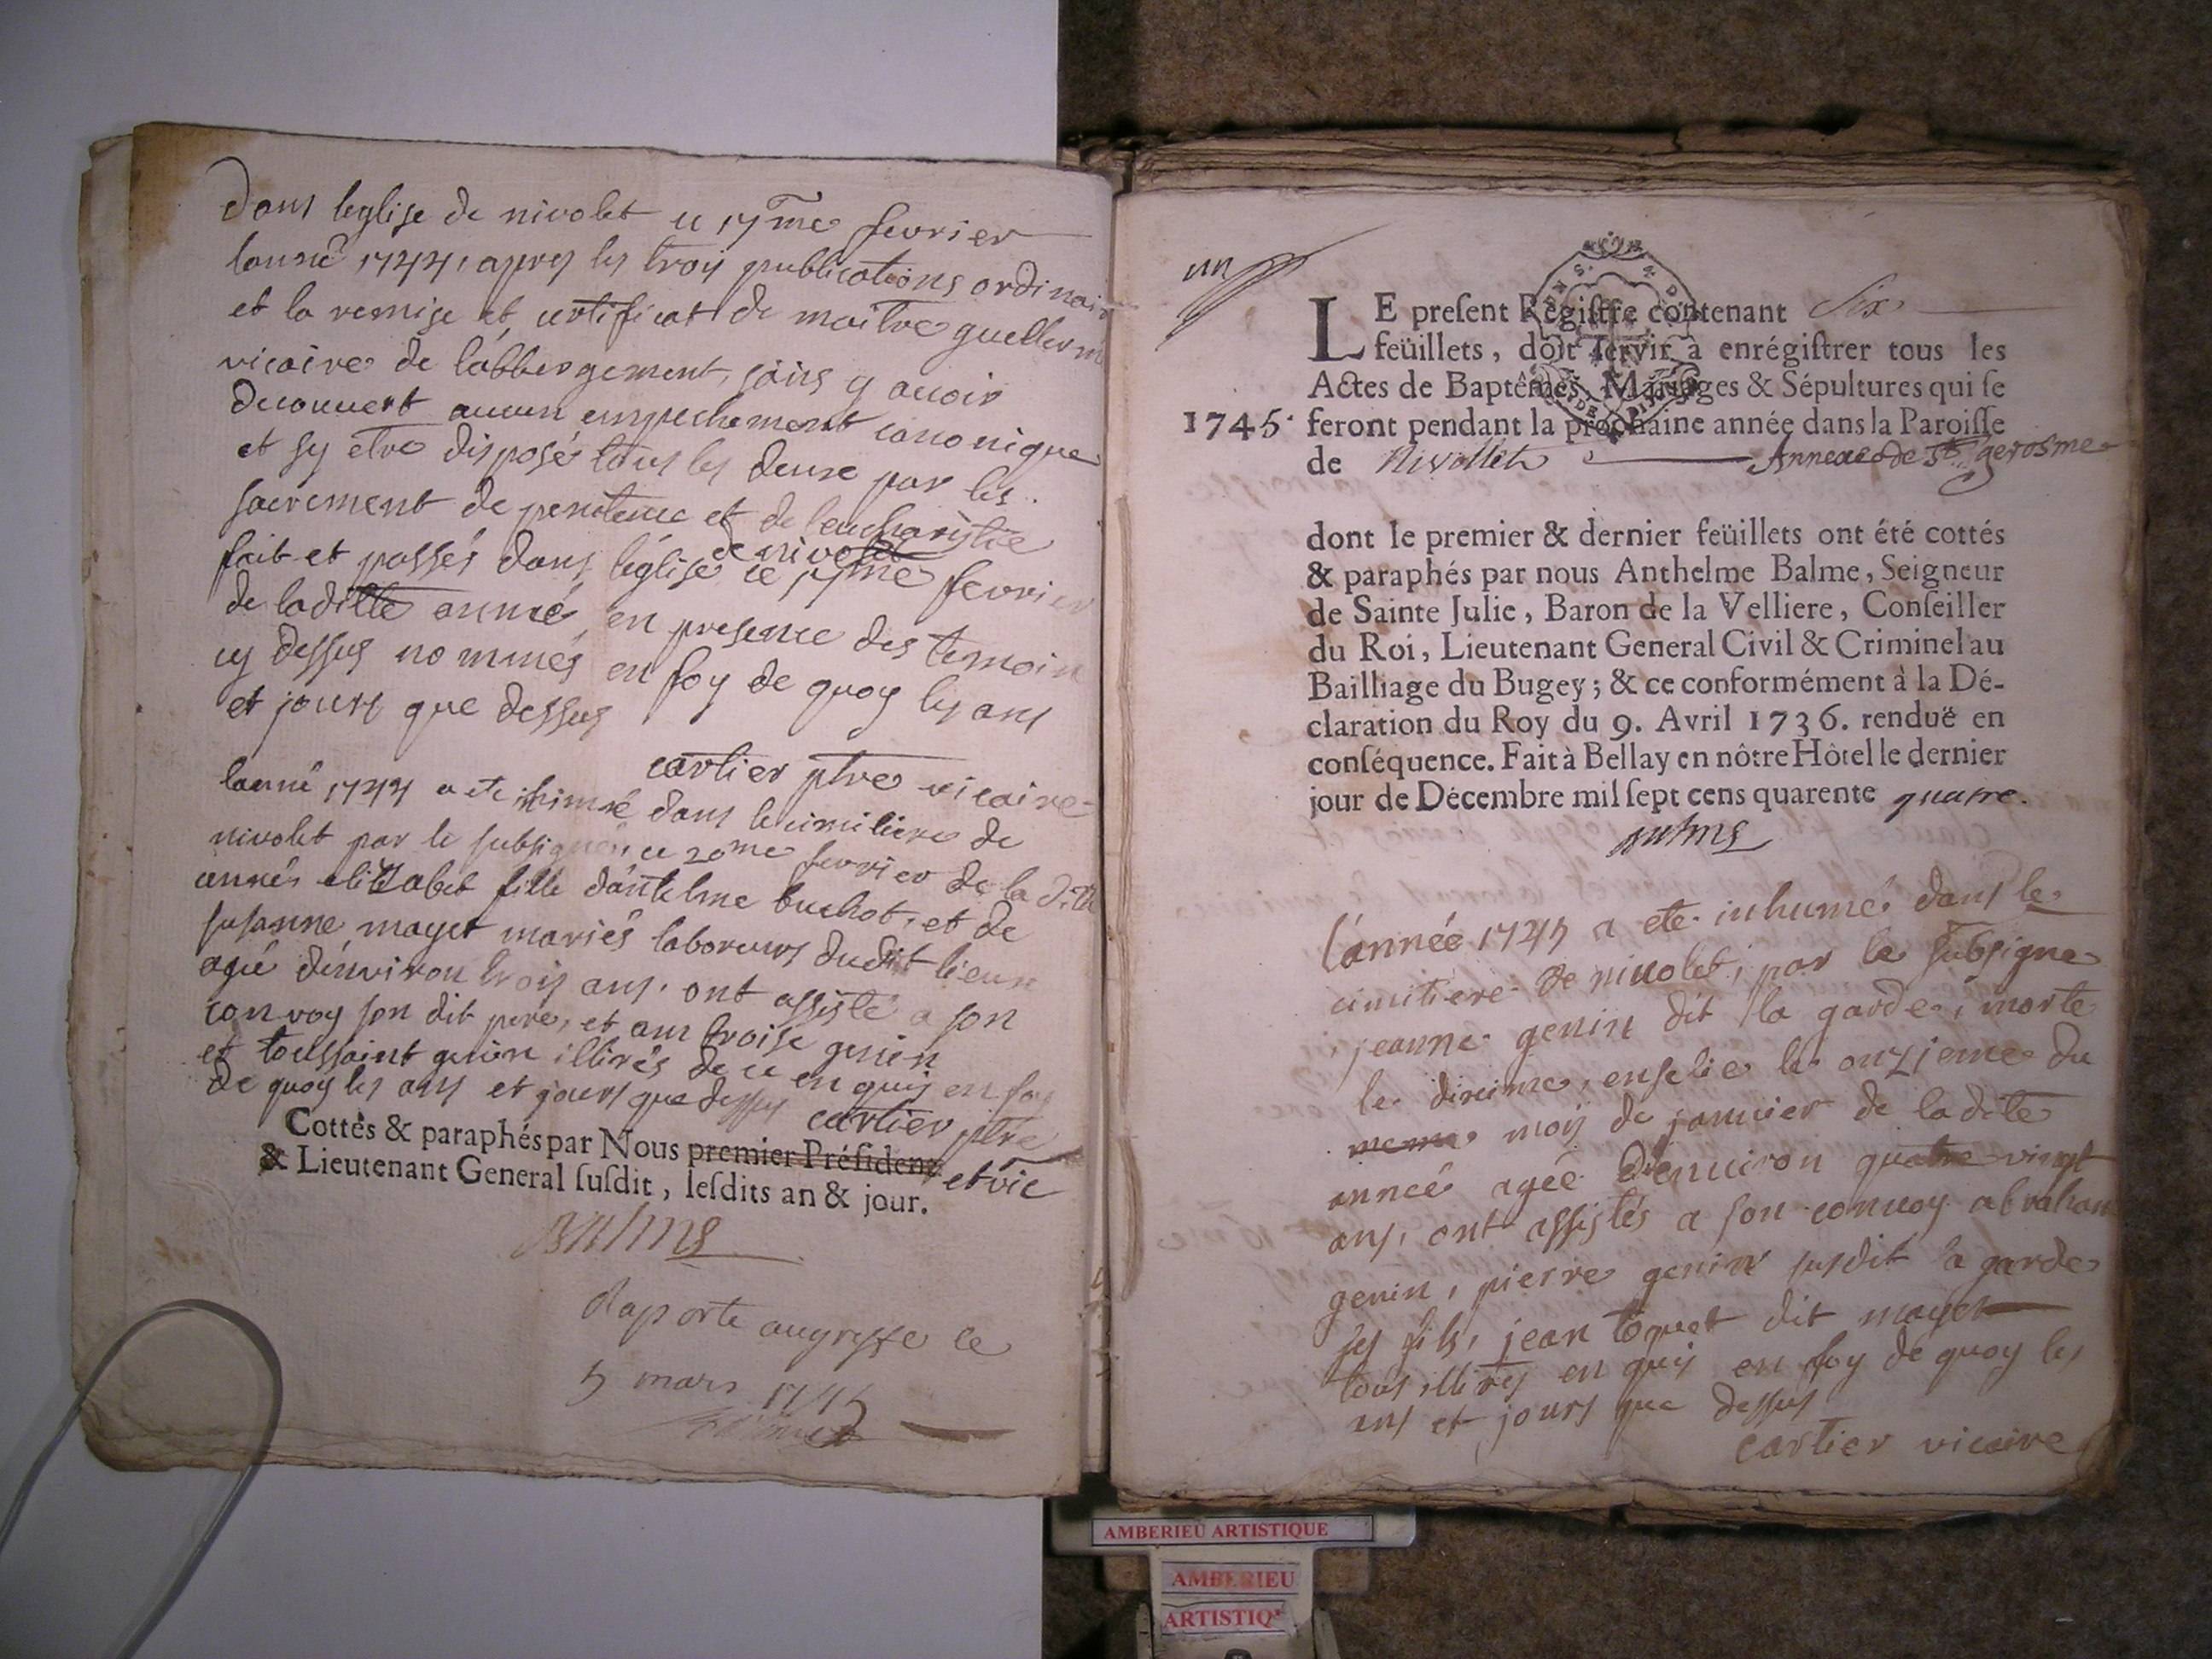 dans leglise de nivolet ce 17me fevrier
lanné 1744, apres les trois publications ordinair
et la remise et certificat de maitre guellerm
vicaire de labbergement, sans y avoir
decouvert aucun empechement canonique
et sy etre disposé tous les deux par les
sacrement de penitence et de leucharistie
de nivolet
fait et passés dans léglise ce 17me fevrier
de laditte année, en presence des temoin
cy dessus nommés en foy de quoy les ans
et jours que dessus
cartier ptre vicaire
lanné 1744 a ete inhumé dans le cimitiere de
nivolet par le subsigné, ce 20me fevrier de la ditte
année elizabet fille dántelme buchot, et de
susanne mayet mariés laboreurs dudit lieux
agé dénviron trois ans, ont assisté a son
convoy son dit pere, et am broise genin
et toussaint genin illirés de ce en quis en foy
de quoy les ans et jours que dessus cartier ptre
et vic
Cottés & paraphés par Nous premier Président
& Lieutenant General susdit, lesdits an & jour.
Raporte augreffe le
5 mars 1745
un
LE present Registre contenant Six
feüillets, doit servir à enrégistrer tous les
Actes de Baptêmes, Mariages & Sépultures qui se
1745. feront pendant la prochaine année dans la Paroisse
de Nivollet Annexe de St. gerosme
dont le premier & dernier feüillets ont été cottés
& paraphés par nous Anthelme Balme, Seigneur
de Sainte Julie, Baron de la Velliere, Conseiller
du Roi, Lieutenant General Civil & Criminel au
Bailliage du Bugey; & ce conformément à la Dé-
claration du Roy du 9. Avril 1736. renduë en
conséquence. Fait à Bellay en nôtre Hôtel le dernier
jour de Décembre mil sept cens quarente quatre.
l'année 1745 a ete inhumé dans le
cimitiere de nivolet, par le subsigne
jeanne genin dit la garde, morte
le dixime, enselie le onzieme du
meme mois de janvier de la dite
année ageé d'environ quatre vingt
ans, ont assistés a son convoy abraham
genin, pierre genin susdit la garde
ses fils, jean toquet dit mayet
tous illires en quis en foy de quoy les
ans et jours que dessus
cartier vicaire
AMBERIEU ARTISTIQUE
AMBERIEU
ARTISTIQ